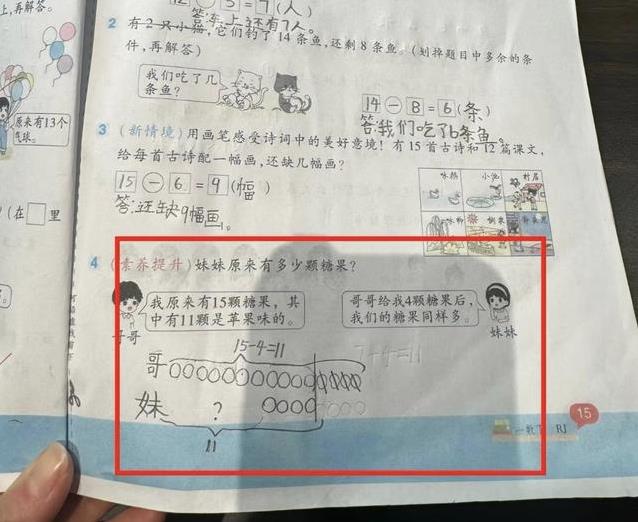 上,再解答。
答:车上还有7人。
2 有2只小猫,它们钓了14条鱼,还剩8条鱼。(划掉题目中多余的条
件,再解答)
我们吃了几
条鱼?
14-8=6(条)
答:我们吃了6条鱼。
原来有13个
气球。
3 (新情境)用画笔感受诗词中的美好意境!有15首古诗和12篇课文,
给每首古诗配一幅画,还缺几幅画?
15-6=9(幅)
答:还缺9幅画。
小池
村居
(在□里
4 (素养提升)妹妹原来有多少颗糖果?
我原来有15颗糖果,其
中有11颗是苹果味的。
哥哥给我4颗糖果后,
我们的糖果同样多。
哥哥
妹妹
15-4=11
7+4=11
哥
妹 ?
11
15
一数下 RJ